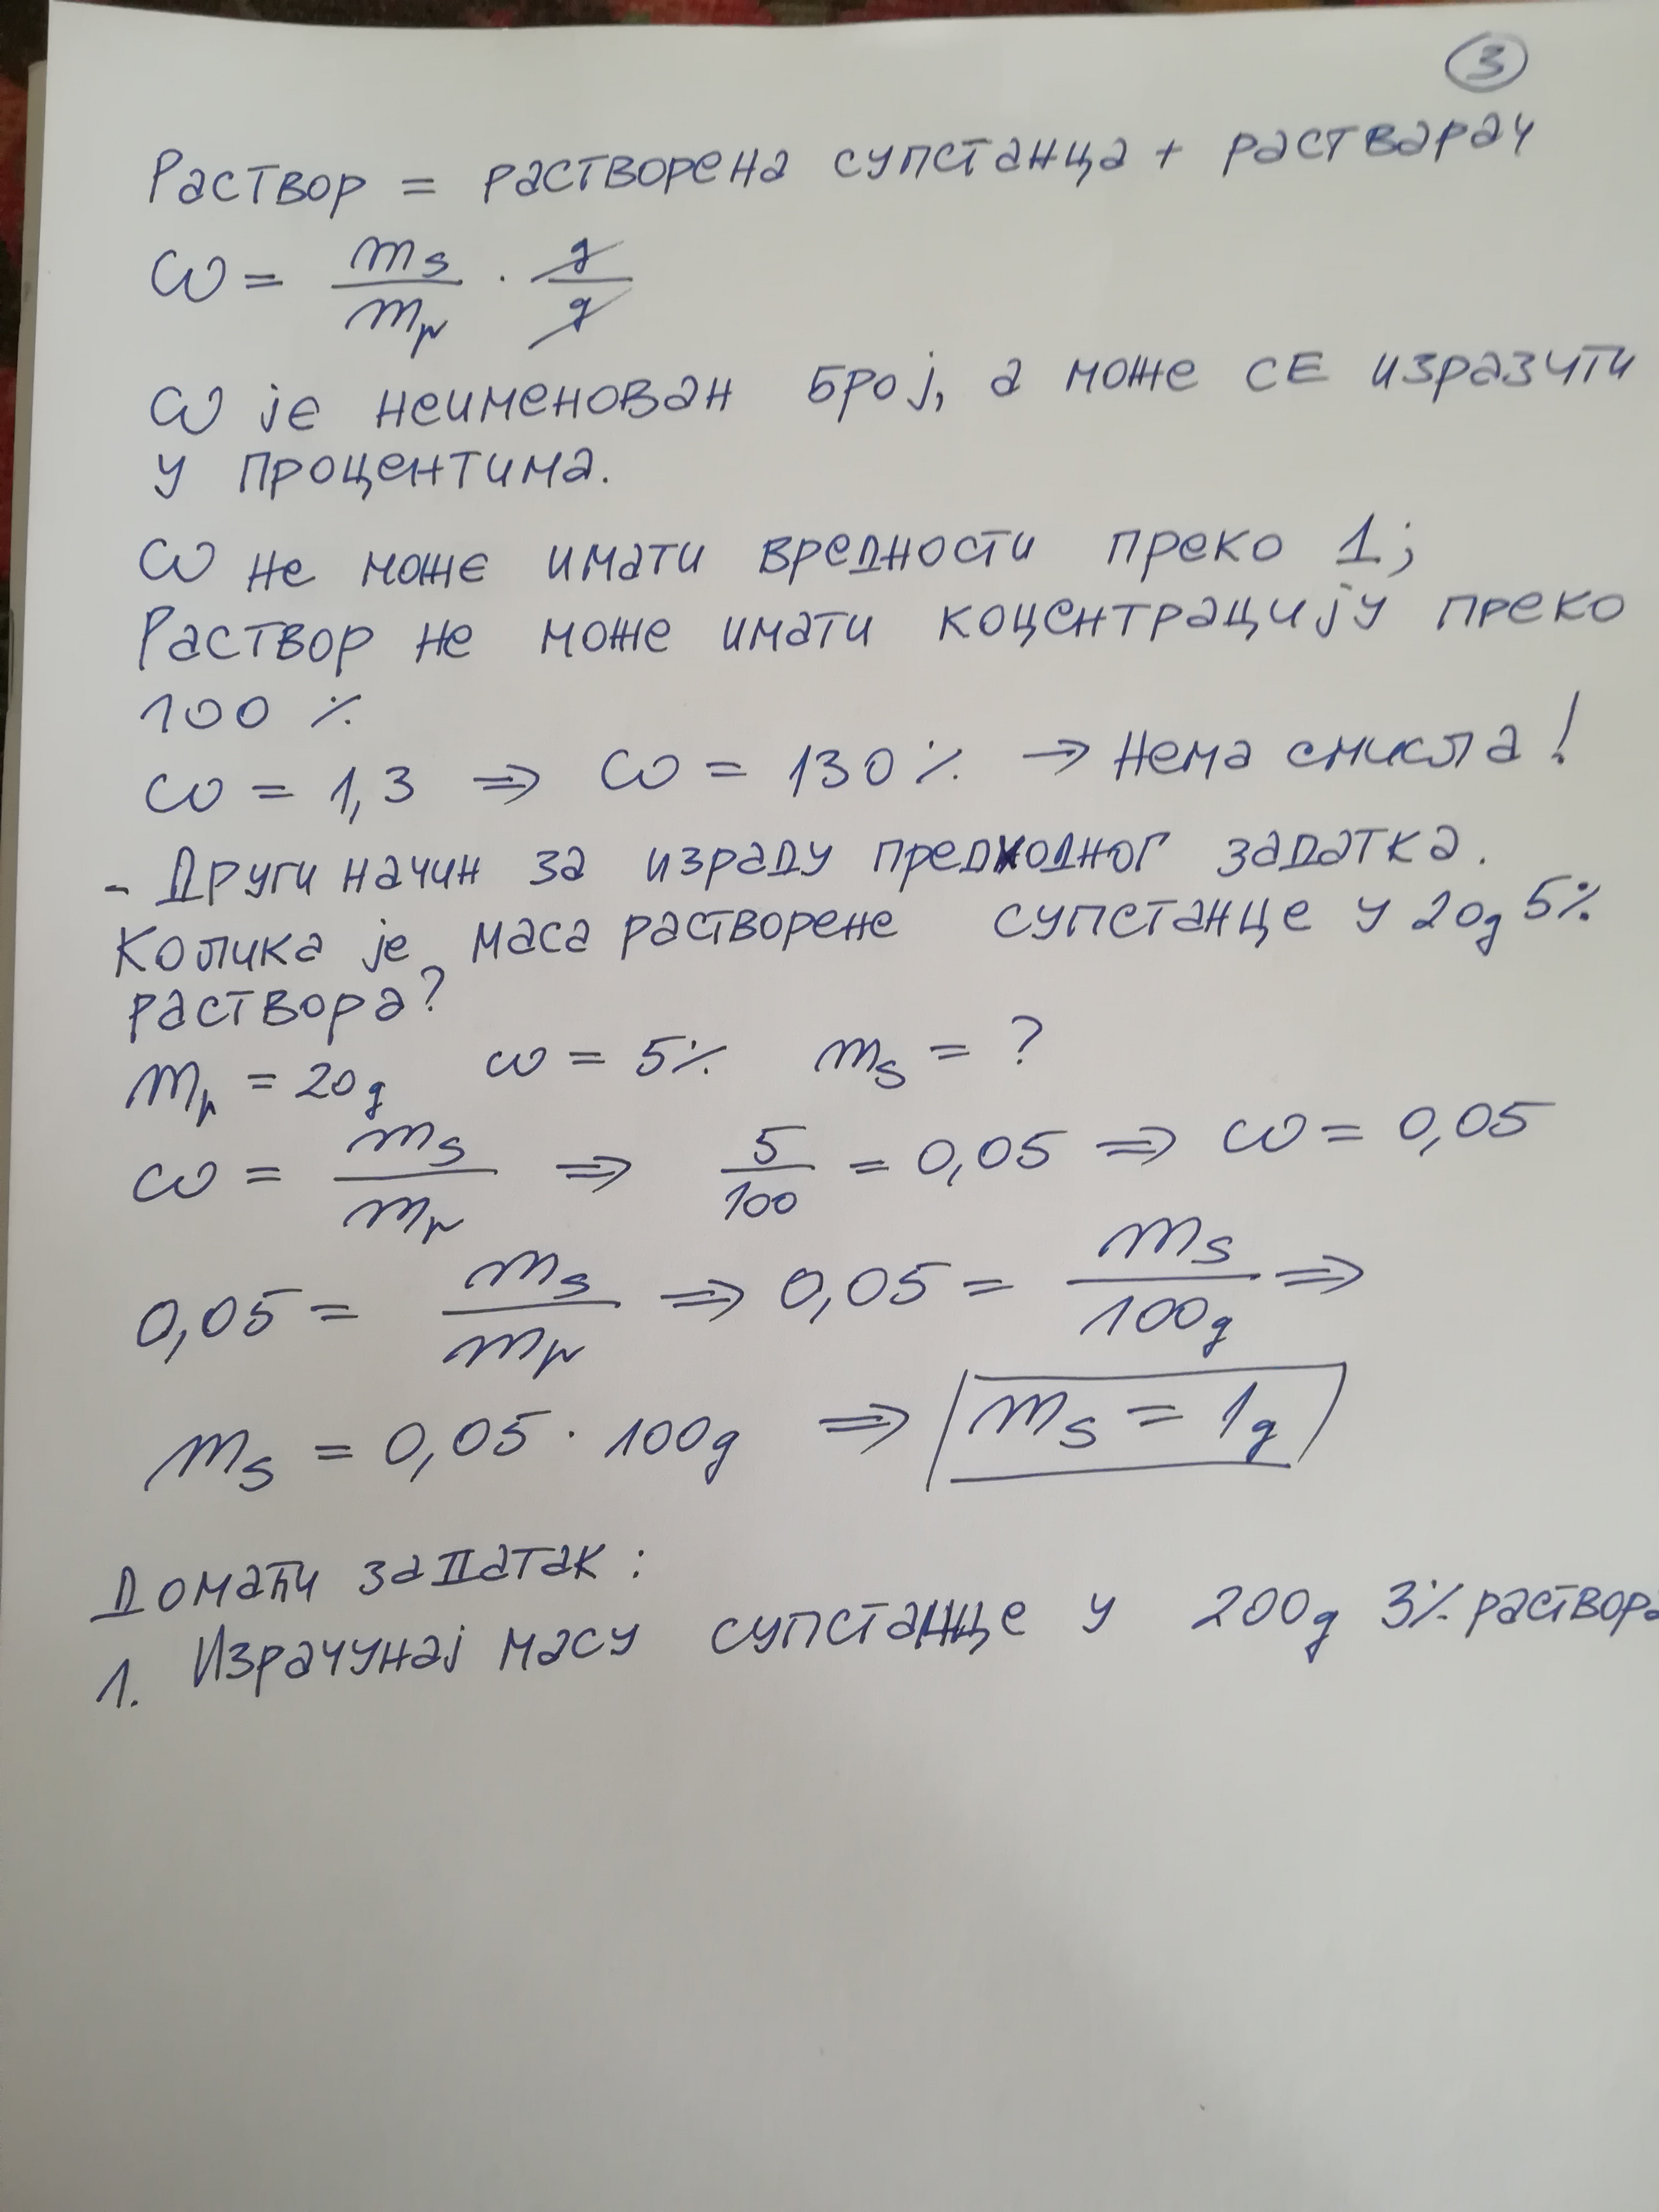 3
Раствор = растворена супстанца + растварач
ω = ms/mr · g/g
ω је неименован број, а може се изразити
у процентима.
ω не може имати вредности преко 1;
Раствор не може имати коцентрацију преко
100 %
ω = 1,3 ⇒ ω = 130 % → Нема смисла!
- Други начин за израду предходног задатка.
Колика је маса растворене супстанце у 20g 5%
раствора?
mr = 20g ω = 5% ms = ?
ω = ms/mr ⇒ 5/100 = 0,05 ⇒ ω = 0,05
0,05 = ms/mr ⇒ 0,05 = ms/100g ⇒
ms = 0,05 · 100g ⇒ ms = 1g
Домаћи задатак:
1. Израчунај масу супстанце у 200g 3% раствора